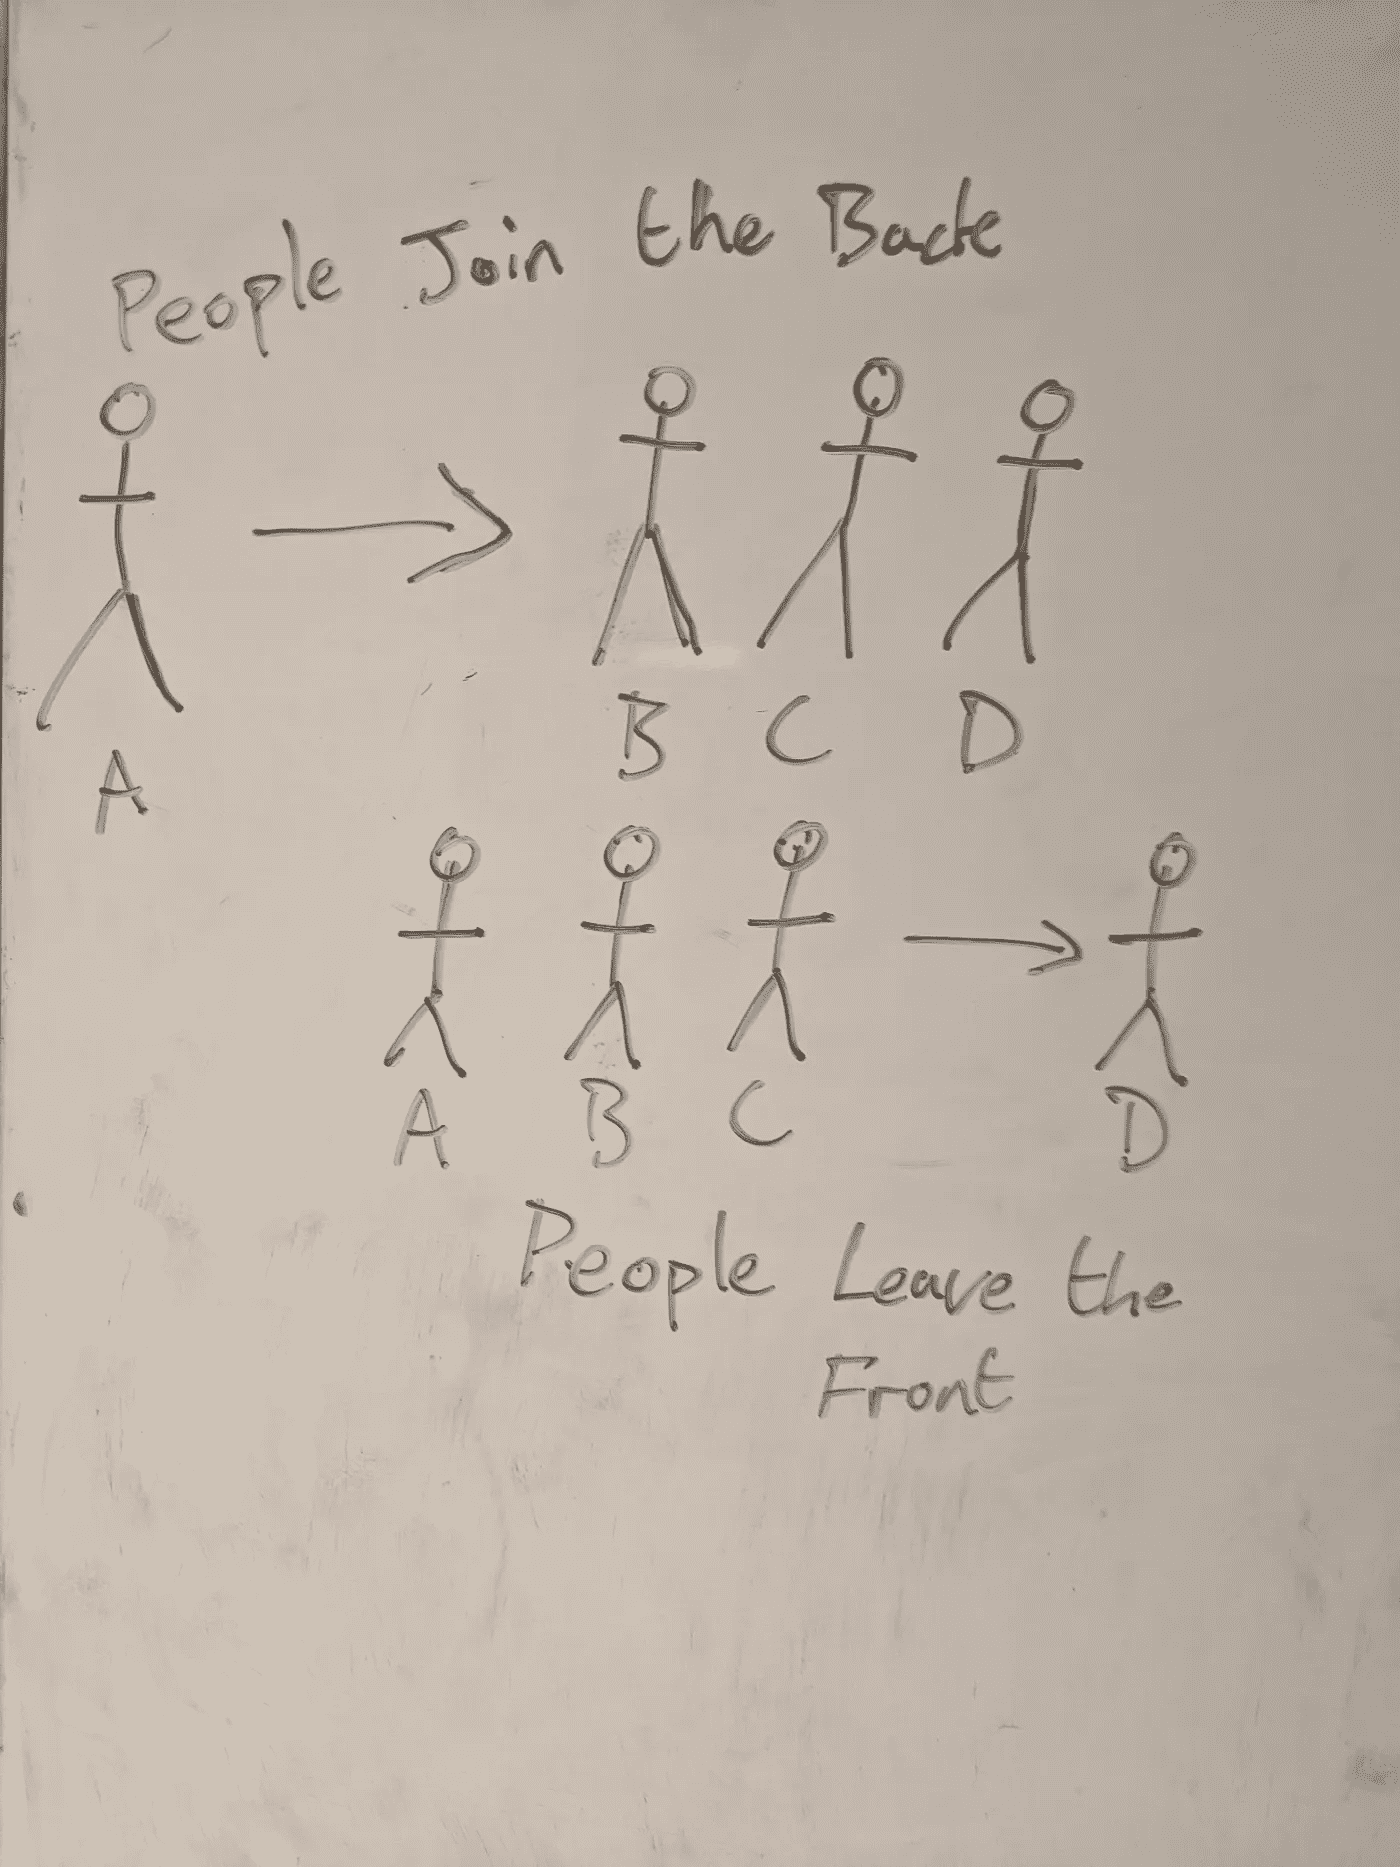 People Join the Back
A B C D
A B C D
People Leave the
Front